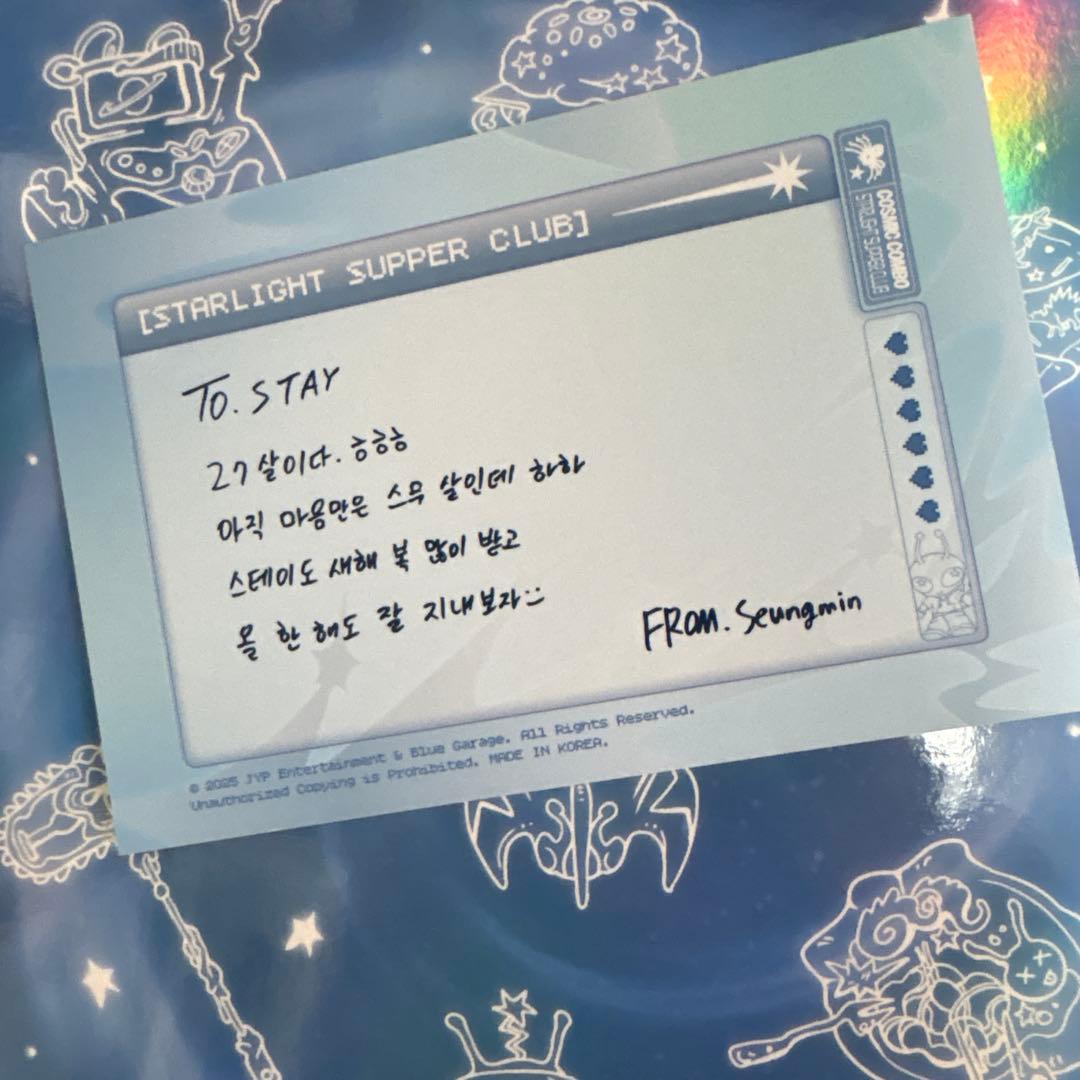 [STARLIGHT SUPPER CLUB]
COSMIC COMBO
STARLIGHT SUPPER CLUB
TO. STAY
27살이다. ㅎㅎㅎ
아직 마음만은 스무 살인데 하하
스테이도 새해 복 많이 받고
올 한 해도 잘 지내보자:)
FROM. Seungmin
© 2025 JYP Entertainment & Blue Garage. All Rights Reserved.
Unauthorized Copying is Prohibited. MADE IN KOREA.